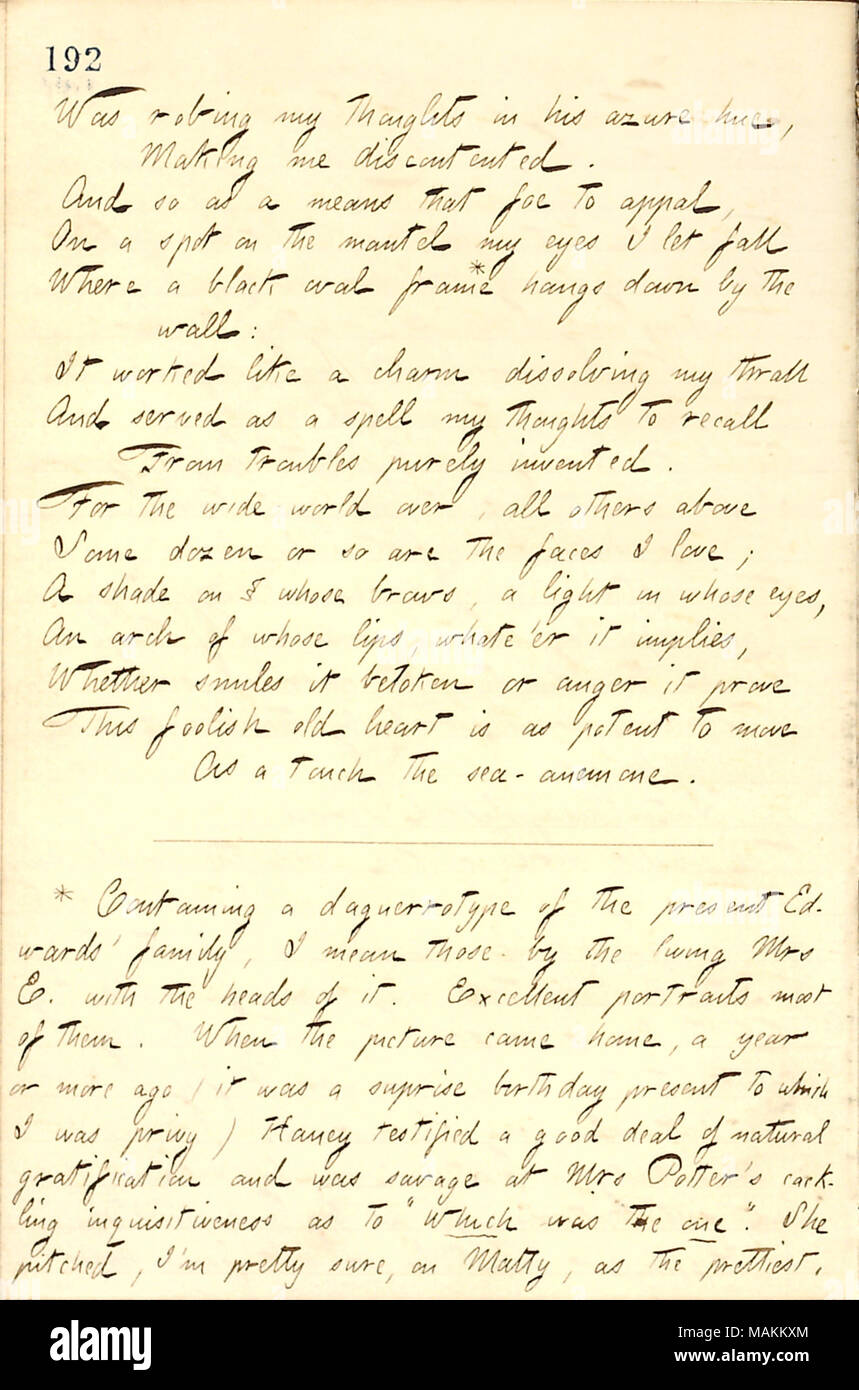 192
Was robing my thoughts in his azure hue,
Making me discontented.
And so as a means that foe to appal,
On a spot on the mantel my eyes I let fall
Where a black oval frame* hangs down by the
wall:
It worked like a charm dissolving my thrall
And served as a spell my thoughts to recall
From troubles purely invented.
For the wide world over, all others above
Some dozen or so are the faces I love;
A shade on whose brows, a light in whose eyes,
An arch of whose lips, whate'er it implies,
Whether smiles it betoken or anger it prove
This foolish old heart is as potent to move
As a touch the sea-anemone.
* Containing a daguerrotype of the present Ed-
wards' family, I mean those by the living Mrs
E. with the heads of it. Excellent portraits most
of them. When the picture came home, a year
or more ago (it was a suprise birthday present to which
I was privy) Haney testified a good deal of natural
gratification and was savage at Mrs Potter's cack-
ling inquisitiveness as to "Which was the one". She
pitched, I'm pretty sure, on Matty, as the prettiest.
alamy
Image ID: MAKKXM
www.alamy.com